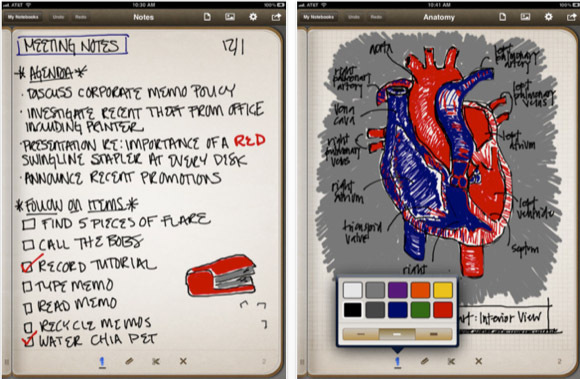 AT&T
10:30 AM
My Notebooks
Undo
Redo
Notes
MEETING NOTES
12/1
*AGENDA*
· DISCUSS CORPORATE MEMO POLICY
· INVESTIGATE RECENT THEFT FROM OFFICE
INCLUDING PRINTER
· PRESENTATION RE: IMPORTANCE OF A RED
SWINGLINE STAPLER AT EVERY DISK
· ANNOUNCE RECENT PROMOTIONS
*FOLLOW ON ITEMS*
FIND 5 PIECES OF FLARE
CALL THE BOBS
RECORD TUTORIAL
TYPE MEMO
READ MEMO
RECYCLE MEMOS
WATER CHIA PET
2
AT&T
10:41 AM
100%
My Notebooks
Undo
Redo
Anatomy
aorta
left
pulmonary
artery
right
pulmonary
artery
left
pulmonary
veins
vena
cava
left
atrium
right
pulmonary
veins
right
atrium
left
ventricle
valve
septum
right
: Interior View
2